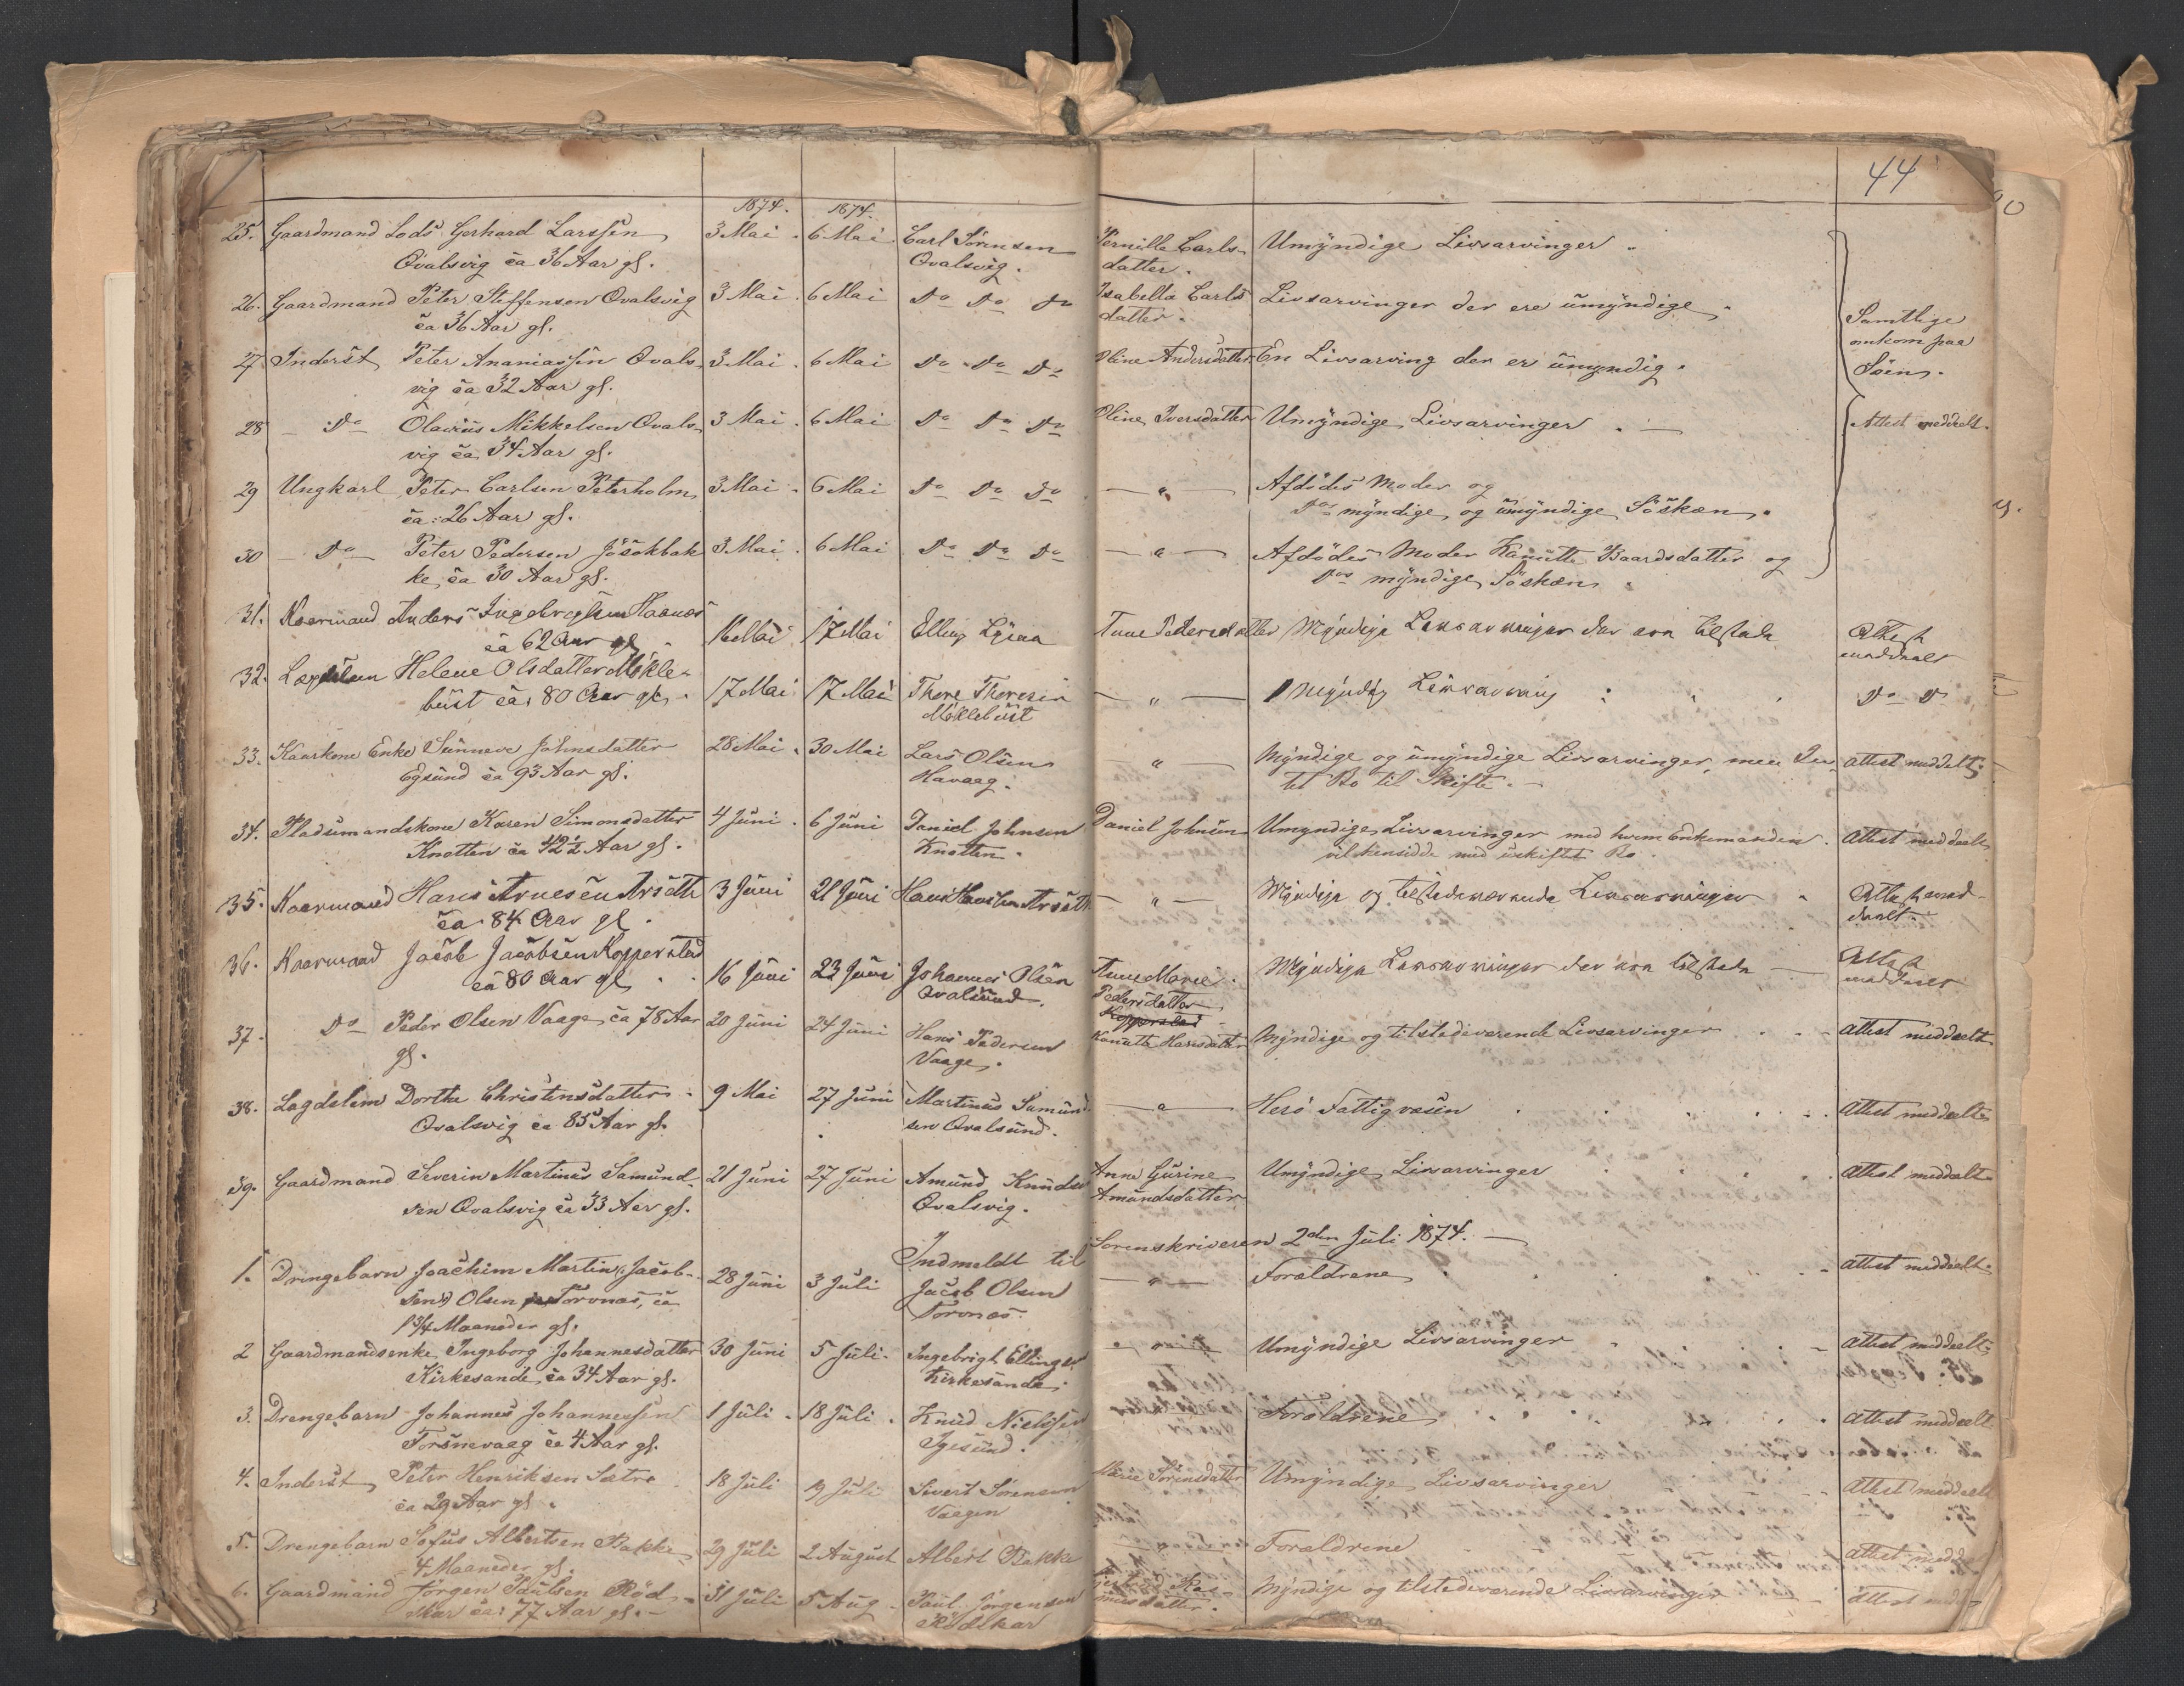 44
1874. 1874.
25. Gaardmand Lods Gerhard Larssen 3 Mai 6 Mai Carl Sørensen Pernille Carls- Umÿndige Livsarvinger
Qvalsvig ca 36 Aar gl. Qvalsvig. datter.
26. Gaardmand Peter Steffensen Qvalsvig 3 Mai 6 Mai Do Do Do Isabella Carls Livsarvinger der ere umÿndige
ca 36 Aar gl. datter. Samtlige
omkom paa
27 Inderst Peter Ananiassen Qvals- 3 Mai 6 Mai Do Do Do Oline Andersdatter En Livsarving der er umÿndig. Søen.
vig ca 32 Aar gl.
28 — Do Olavius Mikkelsen Qvals- 3 Mai 6 Mai Do Do Do Oline Iversdatter Umÿndige Livsarvinger Attest meddeelt.
vig ca 34 Aar gl.
29 Ungkarl Peter Carlsen Peterholm 3 Mai 6 Mai Do Do Do — " — Afdødes Moder og
ca: 26 Aar gl. Do mÿndige og umÿndige Søsken.
30 — Do — Peter Pedersen Jøsokbak 3 Mai 6 Mai Do Do Do — " — Afdødes Moder Kanutte Baardsdatter og
ke ca 30 Aar gl. Do mÿndige Søsken
31. Kaarmand Anders Ingebregtsen 16 Mai 17 Mai Elling Anne Pedersdatter Mÿndige Livsarvinger der ere tilstede Attest
ca 62 Aar gl meddeelt
32. Lægdslem Helene Olsdatter Møkle- 17 Mai 17 Mai Thore Thoresen — " — 1 Mÿndig Livsarving Do Do
bust ca: 80 Aar gl. Møklebust
33. Kaarkone Enke Sunneve Johnsdatter 28 Mai 30 Mai Lars Olsen — " — Mÿndige og umÿndige Livsarvinger, men In- attest meddelt
Egsund ca 93 Aar gl. Havaag. tet Bo til Skifte.
34. Pladsmandskone Karen Simonsdatter 4 Juni 6 Juni Daniel Johnsen Daniel Johnsen Umyndige Livsarvinger med hvem Enkemanden attest meddeelt
Knotten ca 42½ Aar gl. Knotten. vil hensidde med uskiftet Bo.
35. Kaarmand Hans Arnesen Arsæth 3 Juni 21 Juni Hans Hansen Arsæth — " — Mÿndige og tilstedeværende Livsarvinger Attest med-
ca: 84 Aar gl. deelt.
36. Kaarmand Jacob Jacobsen Kopperstad 16 Juni 23 Juni Johannes Olsen Anne Marie Mÿndige Livsarvinger der ere tilstede Attest
ca 80 Aar gl, Qvalsund. Pedersdatter meddeelt
Kopperstad
37. Do — Peder Olsen Vaage ca 78 Aar 20 Juni 24 Juni Hans Pedersen Kanutte Hansdatter Mÿndige og tilstedeverende Livsarvinger attest meddeelt
gl. Vaage.
38. Lagdslem Dorthe Christensdatter 9 Mai 27 Juni Martinus Samund- — " — Herö Fattigvæsen attest meddeelt
Qvalsvig ca 85 Aar gl. sen Qvalsund.
39. Gaardmand Severin Martinus Samund- 21 Juni 27 Juni Amund Knudsen Anne Gurine Umÿndige Livsarvinger attest meddeelt
sen Qvalsvig ca 33 Aar gl. Qvalsvig. Amundsdatter
Indmeldt til Sorenskriveren 2den Juli 1874. —
1. Drengebarn Joachim Martin Jacob- 28 Juni 3 Juli Jacob Olsen — " — Foraldrene attest meddeelt
sen Olsen Torvnæs, ca Torvnæs.
1¾ Maaneder gl.
2 Gaardmandsenke Ingeborg Johannesdatter 30 Juni 5 Juli. Ingebrigt Ellingsen Umÿndige Livsarvinger attest meddeelt
Kirkesande ca 34 Aar gl. Kirkesande.
3. Drengebarn Johannes Johannessen 1 Juli 18 Juli Knud Nielssen Foraldrene attest meddeelt
Torsnevaag ca 4 Aar gl. Igesund.
4. Inderst Peter Henriksen Sætre 18 Juli 19 Juli Sivert Sørensen Marie Sørensdatter Umÿndige Livsarvinger attest meddeelt
ca 29 Aar gl. Vaagen
5. Drengebarn Sofus Albertsen Bakke 29 Juli 2 August Albert Bakke Foraldrene attest
4 Maaneder gl.
6. Gaardmand Jørgen Paulsen Röd- 31 Juli 5 Aug. Paul Jørgensen Mÿndige og tilstedeverende Livsarvinger attest
skar ca: 77 Aar gl. — Rödskar musdatter.